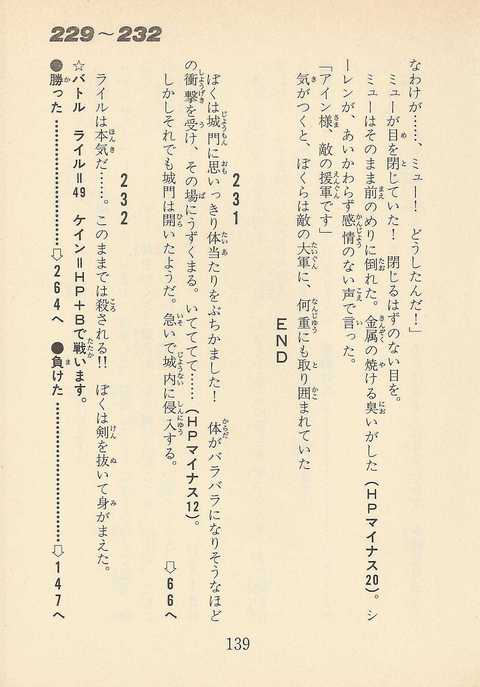 229〜232
なわけが……、ミュー！　どうしたんだ！」
ミューが目を閉じていた！　閉じるはずのない目を。
ミューはそのまま前のめりに倒れた。金属の焼ける臭いがした（HPマイナス20）。シ
ーレンが、あいかわらず感情のない声で言った。
「アイン様、敵の援軍です」
気がつくと、ぼくらは敵の大軍に、何重にも取り囲まれていた
END
231
ぼくは城門に思いっきり体当たりをぶちかました！　体がバラバラになりそうなほど
の衝撃を受け、その場にうずくまる。いてててて……（HPマイナス12）。
しかしそれでも城門は開いたようだ。急いで城内に侵入する。　⇨66へ
232
ライルは本気だ……。このままでは殺される!!　ぼくは剣を抜いて身がまえた。
☆バトル　ライル＝49　ケイン＝HP＋Bで戦います。
●勝った……………⇨264へ　●負けた……………⇨147へ
139